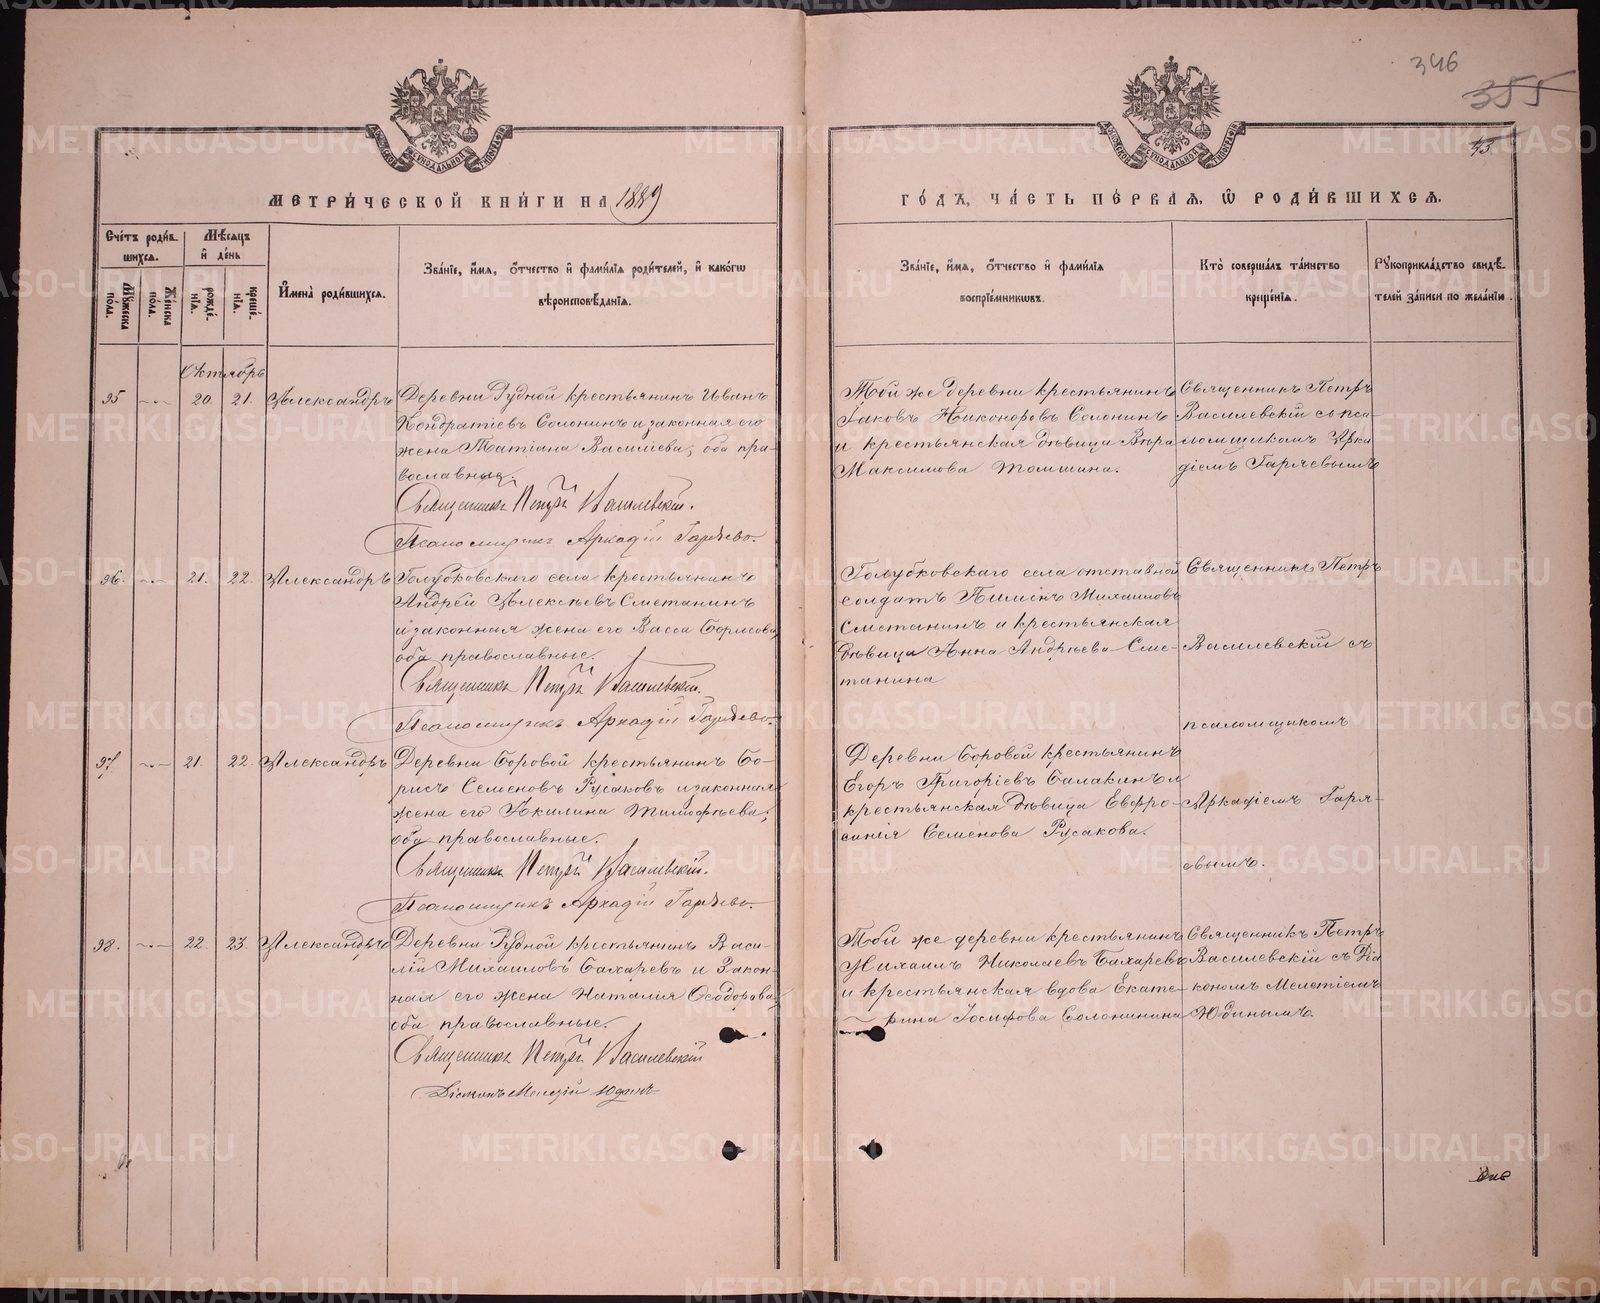 346
355
43
МЕТРИ́ЧЕСКОЙ КНИ́ГИ НА 1889
ГО́ДЪ, ЧА́СТЬ ПЕ́РВАЯ, Ѡ РОДИ́ВШИХСЯ.
Сче́тъ роди́в-
шихся.
Мѣ́сяцъ
и҆ де́нь
Мꙋ́жеска
по́ла.
Же́нска
по́ла.
рожде́-
нїя.
креще́-
нїя.
И҆мена̀ роди́вшихся.
Зва́нїе, и҆́мя, ѻ҆́тчество и҆ фами́лїя роди́телей, и҆ како́гѡ
вѣроисповѣ́данїя.
Зва́нїе, и҆́мя, ѻ҆́тчество и҆ фами́лїя
воспрїе́мникѡвъ.
Кто̀ соверша́лъ та́инство
креще́нїя.
Рꙋкоприкла́дство свидѣ́-
телей за́писи по жела́нїю.
Октябрь
95 20. 21. Александръ
Деревни Рудной крестьянинъ Иванъ
Кондратіевъ Солонинъ и законная его
жена Татіана Василіева, оба пра-
вославные.
Священникъ Петръ Василевскій.
Псаломщикъ Аркадій Гаряево.
Той же деревни крестьянинъ
Іаковъ Никоноровъ Солонинъ
и крестьянская дѣвица Вѣра
Максимова Томшина.
Священникъ Петръ
Василевскій съ пса-
ломщикомъ Арка-
діемъ Гаряевымъ
96. 21. 22. Александръ
Голубковскаго села крестьянинъ
Андрей Алексѣевъ Сметанинъ
и законная жена его Васса Борисова,
оба православные.
Священникъ Петръ Василевскій.
Псаломщикъ Аркадій Гаряево.
Голубковскаго села отставной
солдатъ Пименъ Михаиловъ
Сметанинъ и крестьянская
дѣвица Анна Андрѣева Сме-
танина
Священникъ Петръ
Василевскій съ
псаломщикомъ
Аркадіемъ Гаря-
евымъ.
97. 21. 22. Александръ
Деревни Боровой крестьянинъ Бо-
рисъ Семеновъ Русаковъ и законная
жена его Акилина Тимофѣева,
оба православные.
Священникъ Петръ Василевскій.
Псаломщикъ Аркадій Гаряево.
Деревни Боровой крестьянинъ
Егоръ Григоріевъ Балакинъ и
крестьянская дѣвица Евфро-
синія Семенова Русакова.
98. 22. 23. Александръ
Деревни Рудной крестьянинъ Васи-
лій Михаиловъ Бахаревъ и закон-
ная его жена Наталія Ѳеодорова,
оба православные.
Священникъ Петръ Василевскій
Діаконъ Мелетій Юдинъ
Той же деревни крестьянинъ
Михаилъ Николаевъ Бахаревъ
и крестьянская вдова Екате-
рина Іосифова Солонинина
Священникъ Петръ
Василевскій съ Діа
кономъ Мелетіемъ
Юдинымъ.
METRIKI.GASO-URAL.RU